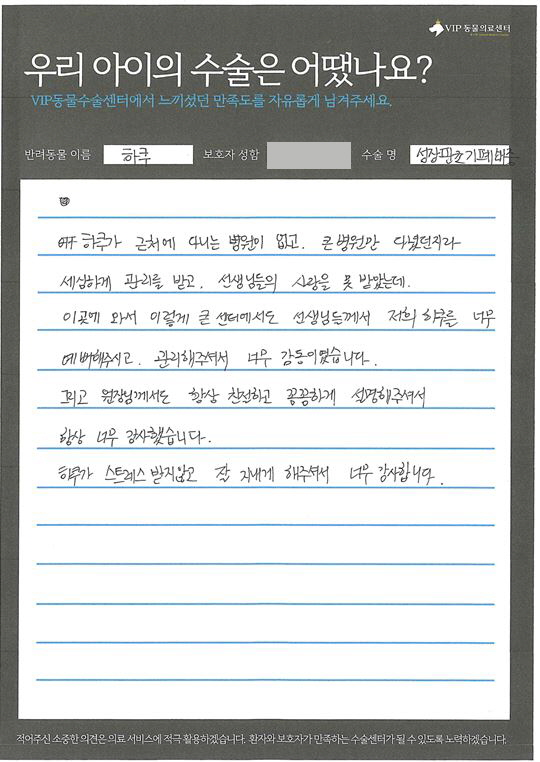 VIP 동물의료센터
우리 아이의 수술은 어땠나요?
VIP동물수술센터에서 느끼셨던 만족도를 자유롭게 남겨주세요.
반려동물 이름 하쿠 보호자 성함 수술 명 성장판조기폐쇄증
하쿠가 근처에 다니는 병원이 없고. 큰 병원만 다녔던지라
세심하게 관리를 받고. 선생님들의 사랑을 못 받았는데.
이곳에 와서 이렇게 큰 센터에서도 선생님들께서 저희 하쿠를 너무
예뻐해주시고. 관리해주셔서 너무 감동이였습니다.
그리고 원장님께서도 항상 친절하고 꼼꼼하게 설명해주셔서
항상 너무 감사했습니다.
하쿠가 스트레스 받지않고 잘 지내게 해주셔서 너무 감사합니다.
적어주신 소중한 의견은 의료 서비스에 적극 활용하겠습니다. 환자와 보호자가 만족하는 수술센터가 될 수 있도록 노력하겠습니다.